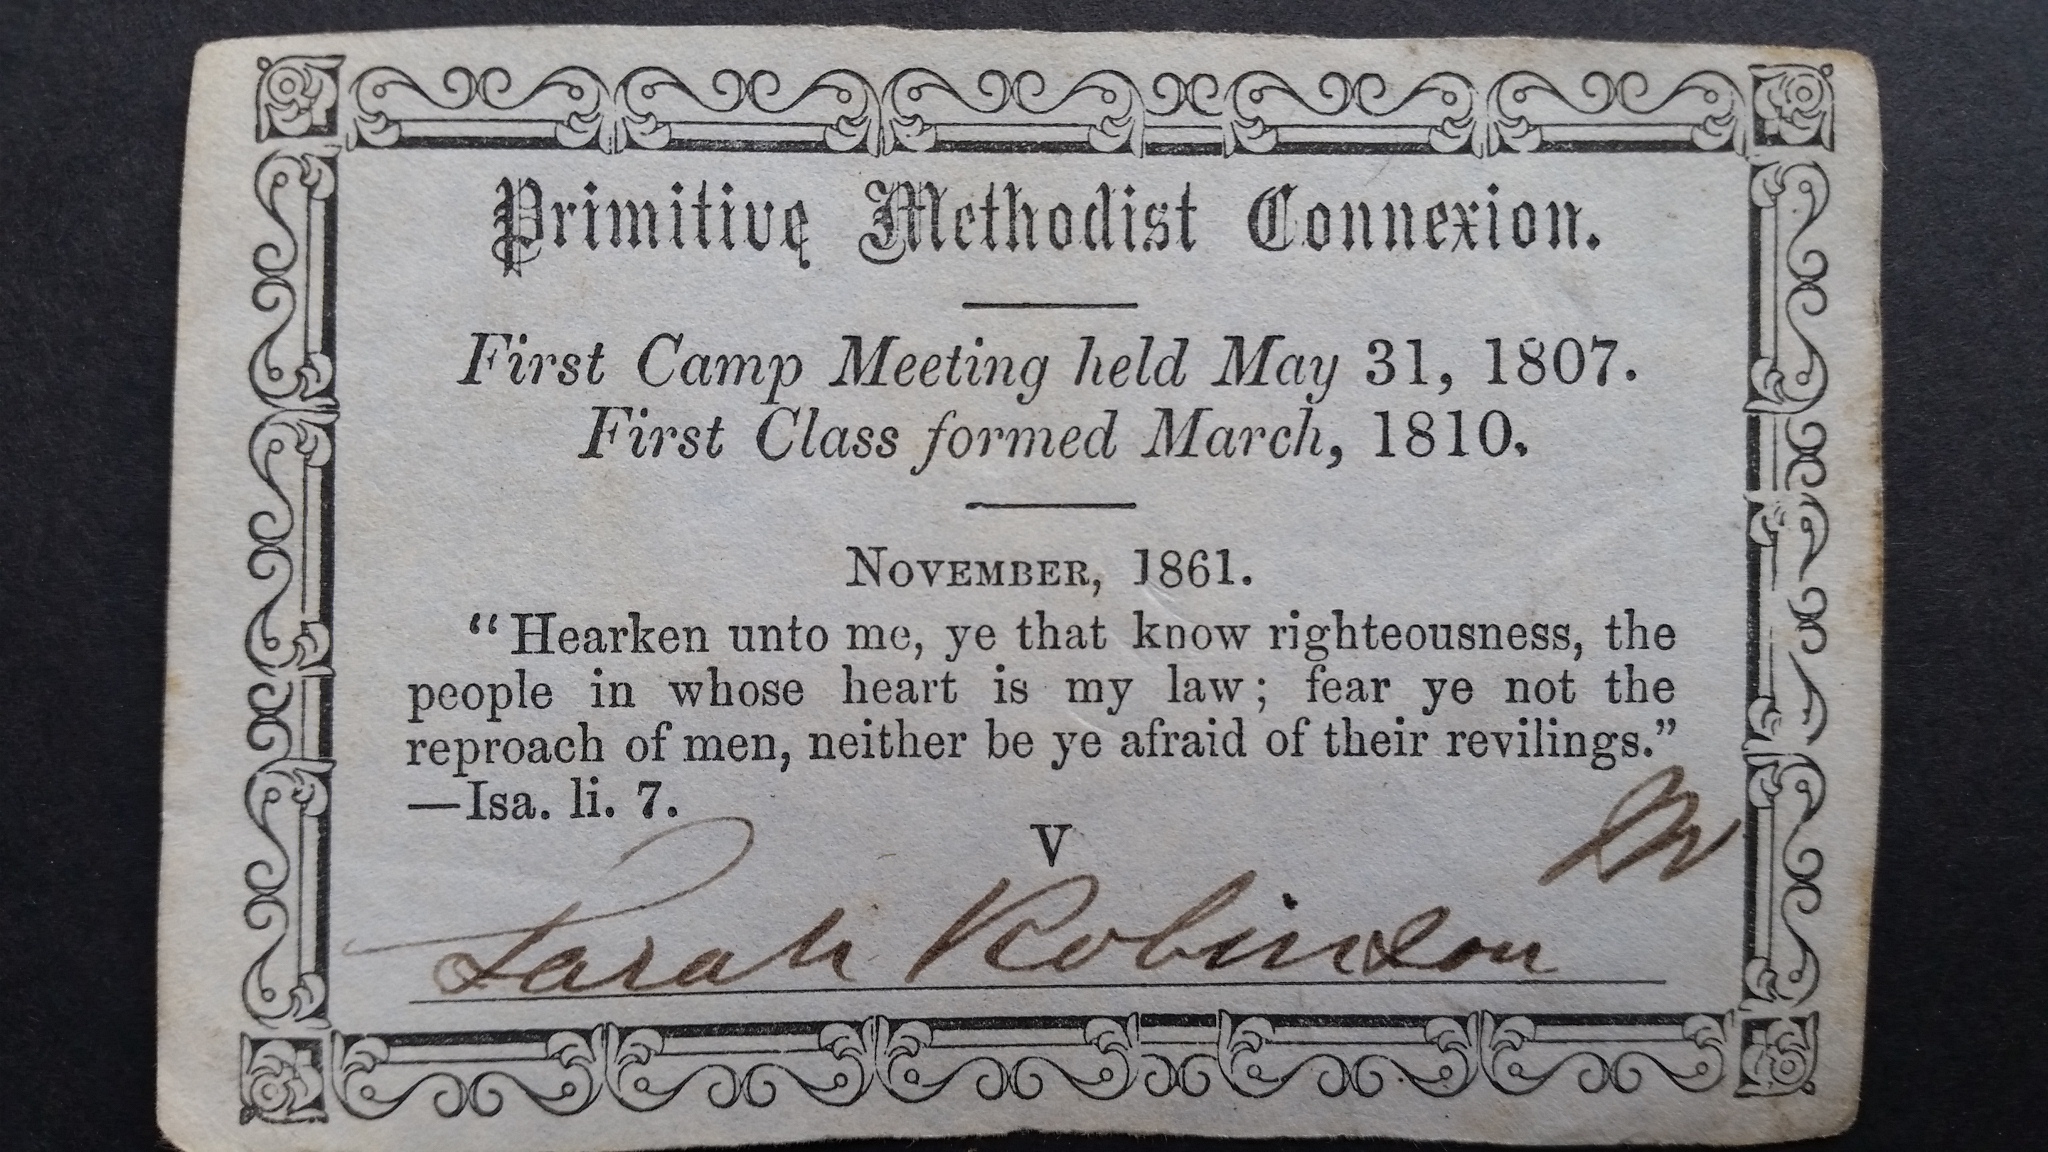 Primitive Methodist Connexion.
First Camp Meeting held May 31, 1807.
First Class formed March, 1810.
NOVEMBER, 1861.
“Hearken unto me, ye that know righteousness, the
people in whose heart is my law; fear ye not the
reproach of men, neither be ye afraid of their revilings.”
—Isa. li. 7.
V
Sarah Robinson